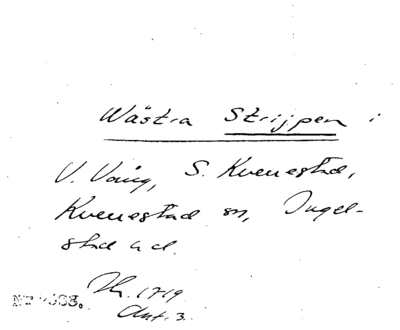 Wästra Strijpen i
V. Vång, S. Kvenestad,
Kvenestad sn, Ingel-
stad hd.
Th. 1719
Akt. 3.